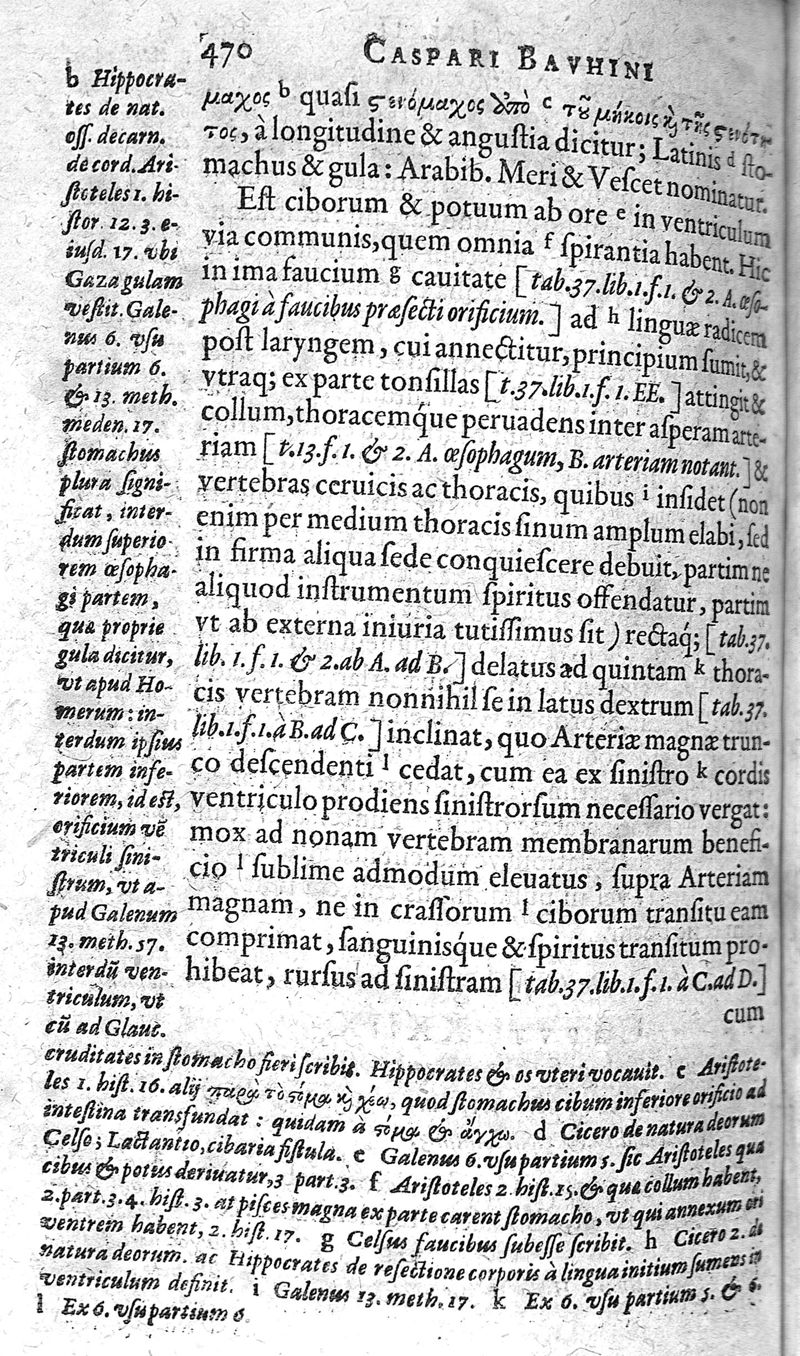 470 CASPARI BAVHINI
μαχος b quasi ϛενόμαχος ὑπὸ c τοῦ μήκοις κὶ τῆς ϛενότη
τος, à longitudine & angustia dicitur; Latinis d sto-
machus & gula: Arabib. Meri & Vescet nominatur.
Est ciborum & potuum ab ore e in ventriculum
via communis, quem omnia f spirantia habent. Hic
in ima faucium g cauitate [tab.37.lib.1.f.1. & 2. A. œso-
phagi à faucibus præsecti orificium.] ad h linguæ radicem
post laryngem, cui annectitur, principium sumit, &
vtraq; ex parte tonsillas [t.37.lib.1.f.1.EE.] attingit &
collum, thoracemq́ue peruadens inter asperam arte-
riam [t.13.f.1. & 2. A. œsophagum, B. arteriam notant.] &
vertebras ceruicis ac thoracis, quibus i insidet (non
enim per medium thoracis sinum amplum elabi, sed
in firma aliqua sede conquiescere debuit, partim ne
aliquod instrumentum spiritus offendatur, partim
vt ab externa iniuria tutissimus sit) rectaq́; [tab.37.
lib.1.f.1. & 2.ab A. ad B.] delatus ad quintam k thora-
cis vertebram nonnihil se in latus dextrum [tab.37.
lib.1.f.1.à B.ad C.] inclinat, quo Arteriæ magnæ trun-
co descendenti l cedat, cum ea ex sinistro k cordis
ventriculo prodiens sinistrorsum necessario vergat:
mox ad nonam vertebram membranarum benefi-
cio l sublime admodum eleuatus, supra Arteriam
magnam, ne in crassorum l ciborum transitu eam
comprimat, sanguinisq́ue & spiritus transitum pro-
hibeat, rursus ad sinistram [tab.37.lib.1.f.1. à C.ad D.]
cum
b Hippocra-
tes de nat.
oss. de carn.
de cord. Ari-
stoteles 1. hi-
stor. 12. 3. e-
iusd. 17. vbi
Gaza gulam
vestit. Gale-
nus 6. vsu
partium 6.
& 13. meth.
meden. 17.
stomachus
plura signi-
ficat, inter-
dum superio-
rem œsopha-
gi partem,
qua proprie
gula dicitur,
vt apud Ho-
merum: in-
terdum ipsius
partem infe-
riorem, id est,
orificium vē
triculi sini-
strum, vt a-
pud Galenum
13. meth. 57.
interdū ven-
triculum, vt
cū ad Glauc.
cruditates in stomacho fieri scribit. Hippocrates & os vteri vocauit. c Aristote-
les 1. hist. 16. alij παρὰ τὸ ϛόμα κὶ χέω, quod stomachus cibum inferiore orificio ad
intestina transfundat: quidam à ϛόμα & ἄγχω. d Cicero de natura deorum
Celso; Lactantio, cibaria fistula. e Galenus 6. vsu partium 5. sic Aristoteles qua
cibus & potus deriuatur, 3 part. 3. f Aristoteles 2. hist. 15. & qua collum habent,
2. part. 3. 4. hist. 3. at pisces magna ex parte carent stomacho, vt qui annexum ori
ventrem habent, 2. hist. 17. g Celsus faucibus subesse scribit. h Cicero 2. de
natura deorum. ac Hippocrates de resectione corporis à lingua initium sumens in
ventriculum definit. i Galenus 13. meth. 17. k Ex 6. vsu partium 5. & 6.
l Ex 6. vsu partium 6